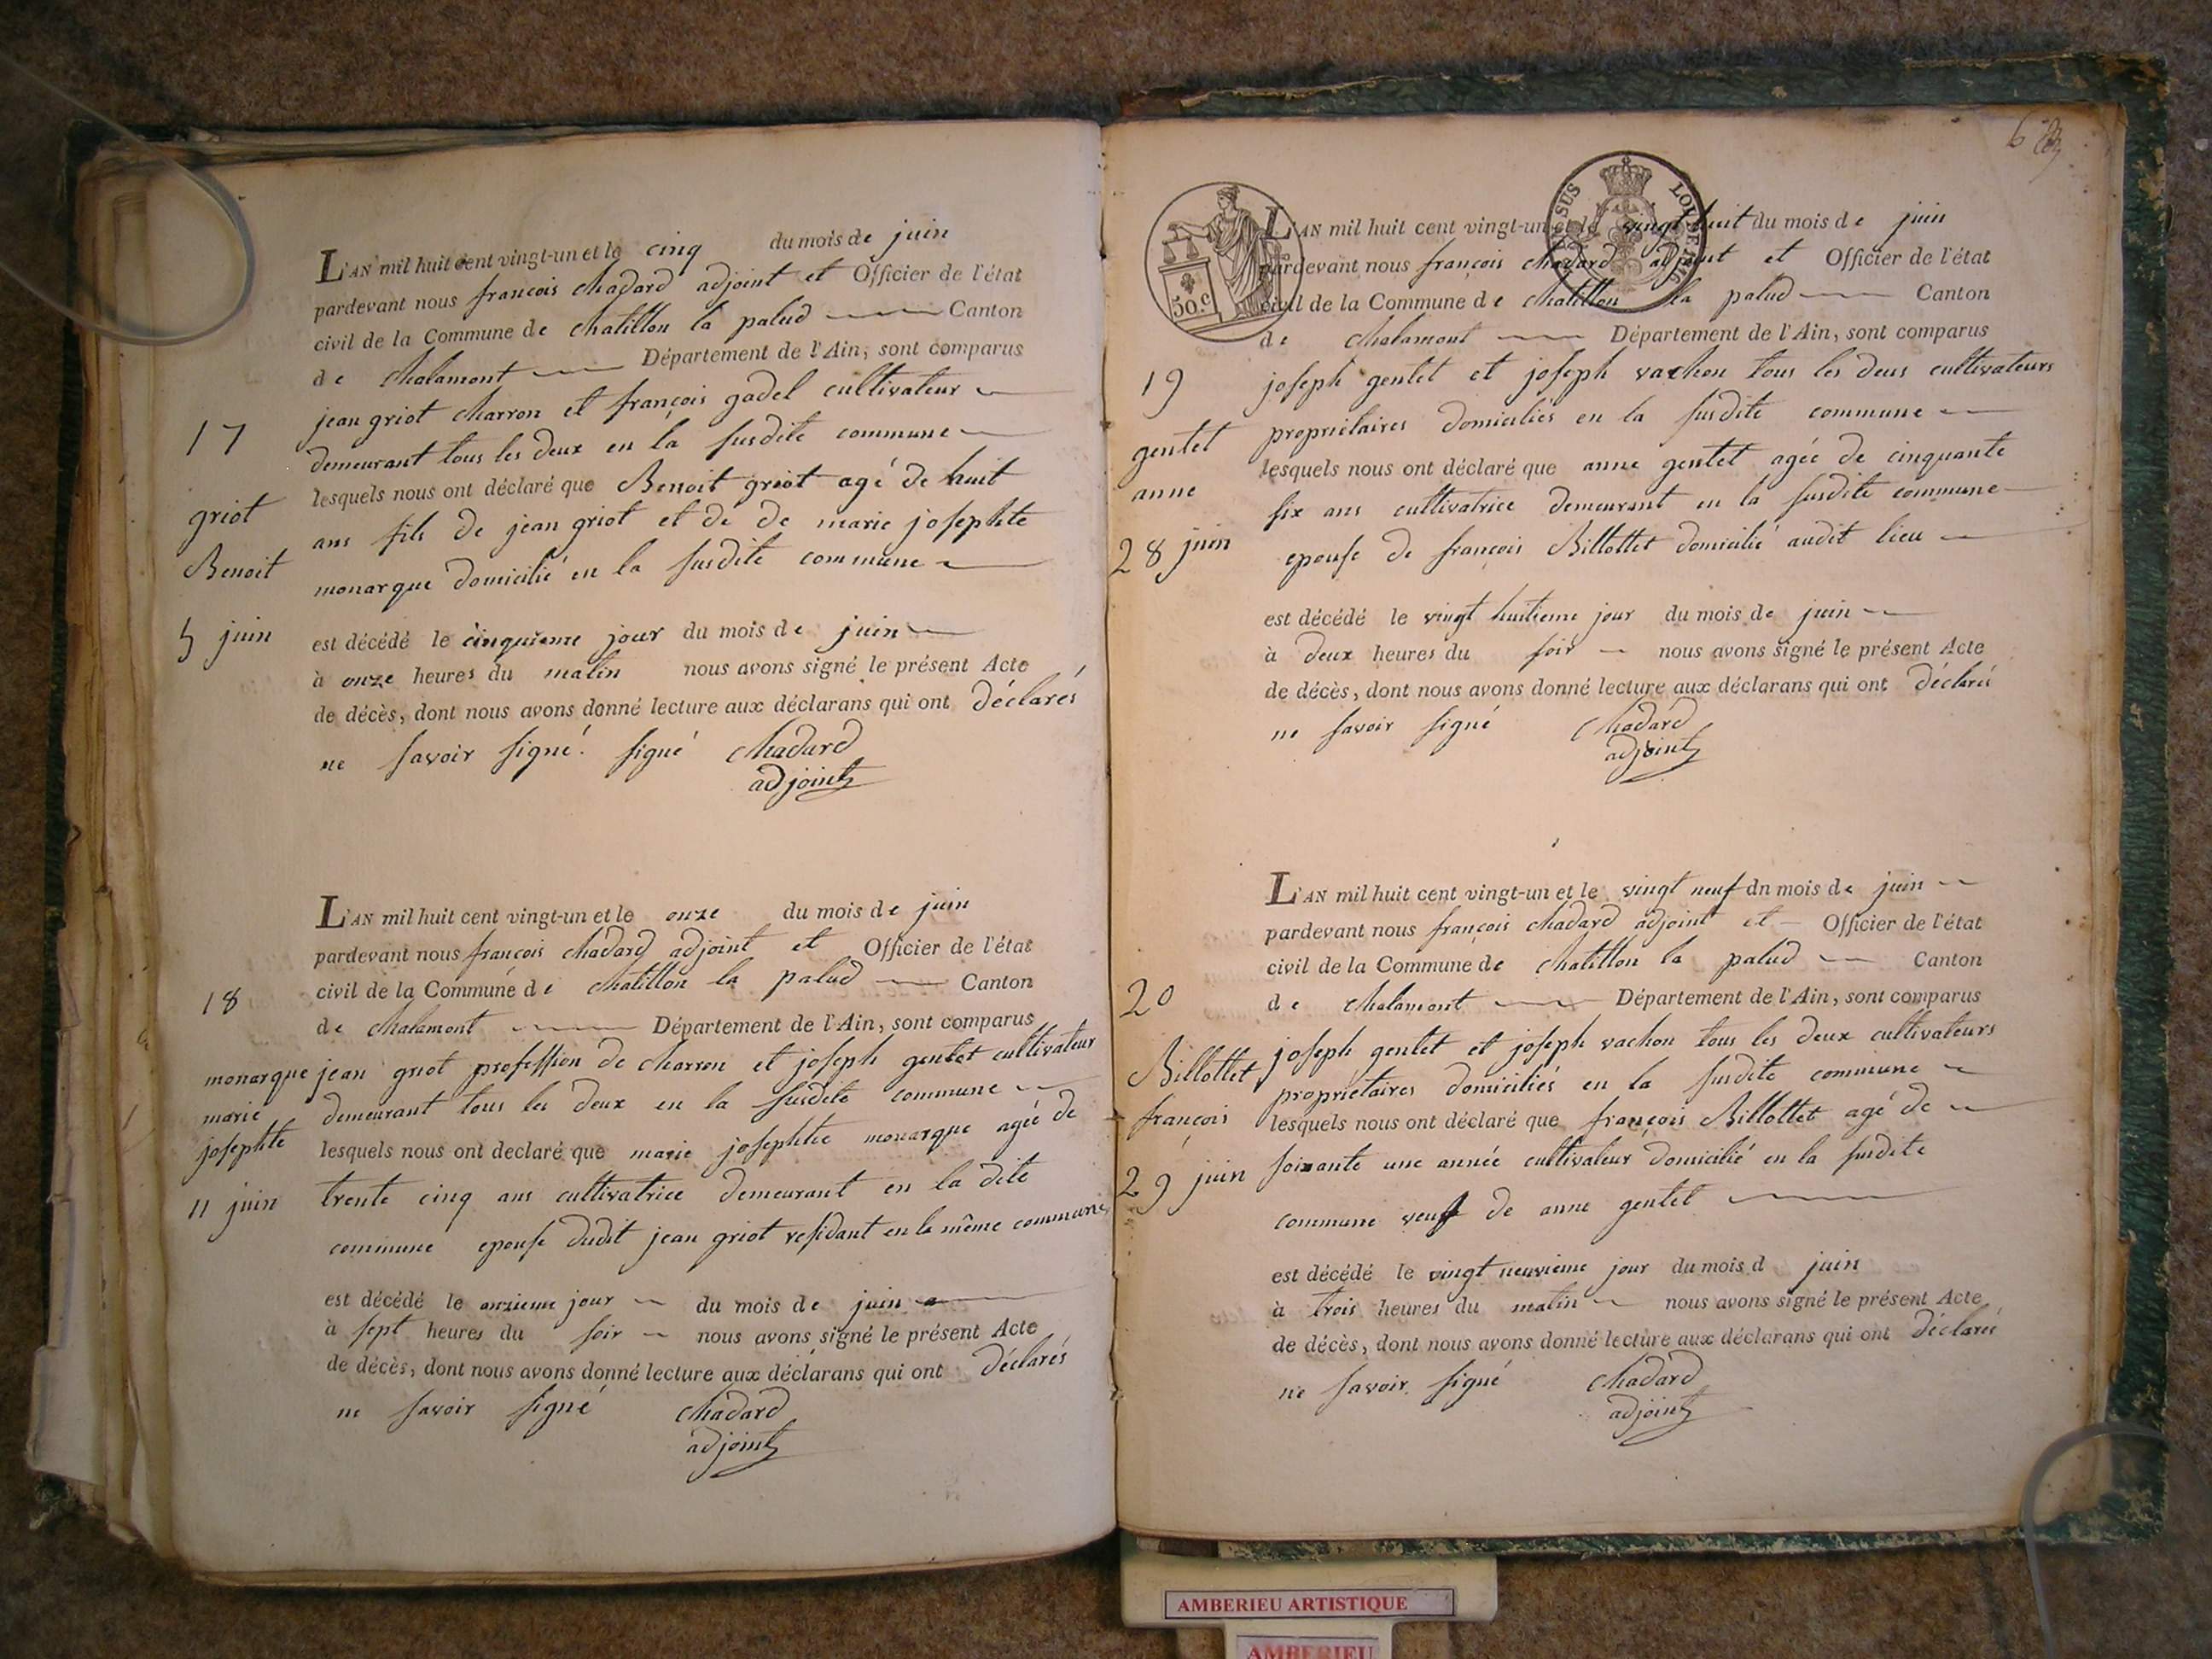 L'AN mil huit cent vingt-un et le cinq du mois de juin
pardevant nous francois chadard adjoint et Officier de l'état
civil de la Commune de chatillon la palud Canton
de chalamont Département de l'Ain, sont comparus
jean griot charron et françois gadel cultivateur
17
demeurant tous les deux en la susdite commune
lesquels nous ont déclaré que Benoit griot agé de huit
griot
ans fils de jean griot et de de marie josephte
Benoit
monarque domicilié en la susdite commune
5 juin
est décédé le cinquieme jour du mois de juin
à onze heures du matin nous avons signé le présent Acte
de décès, dont nous avons donné lecture aux déclarans qui ont déclarés
ne savoir signé. signé chadard
adjoint
L'AN mil huit cent vingt-un et le onze du mois de juin
pardevant nous francois chadard adjoint et Officier de l'état
civil de la Commune de chatillon la palud Canton
18
de chalamont Département de l'Ain, sont comparus
monarque
jean griot profession de charron et joseph gentet cultivateur
marie
demeurant tous les deux en la susdite commune
josephte
lesquels nous ont declaré que marie josephte monarque agée de
11 juin
trente cinq ans cultivatrice demeurant en la dite
commune epouse dudit jean griot residant en la même commune
est décédé le onzieme jour du mois de juin
à sept heures du soir nous avons signé le présent Acte
de décès, dont nous avons donné lecture aux déclarans qui ont déclarés
ne savoir signé chadard
adjoint
6
50.c
SUS
L'AN mil huit cent vingt-un et le vingt huit du mois de juin
pardevant nous françois chadard adjoint et Officier de l'état
civil de la Commune de chatillon la palud Canton
de chalamont Département de l'Ain, sont comparus
19
joseph gentet et joseph vachon tous les deus cultivateurs
gentet
propriétaires domiciliés en la susdite commune
anne
lesquels nous ont déclaré que anne gentet agée de cinquante
six ans cultivatrice demeurant en la susdite commune
28 juin
epouse de françois Billottet domicilié audit lieu
est décédé le vingt huitieme jour du mois de juin
à deux heures du soir nous avons signé le présent Acte
de décès, dont nous avons donné lecture aux déclarans qui ont déclarés
ne savoir signé chadard
adjoint
L'AN mil huit cent vingt-un et le vingt neuf dn mois de juin
pardevant nous françois chadard adjoint et Officier de l'état
civil de la Commune de chatillon la palud Canton
20
de chalamont Département de l'Ain, sont comparus
Billottet
joseph gentet et joseph vachon tous les deux cultivateurs
propriétaires domiciliés en la susdite commune
françois
lesquels nous ont déclaré que françois Billottet agé de
29 juin
soixante une année cultivateur domicilié en la susdite
commune veuf de anne gentet
est décédé le vingt neuvieme jour du mois d juin
à trois heures du matin nous avons signé le présent Acte
de décès, dont nous avons donné lecture aux déclarans qui ont déclarés
ne savoir signé chadard
adjoint
AMBERIEU ARTISTIQUE
AMBERIEU